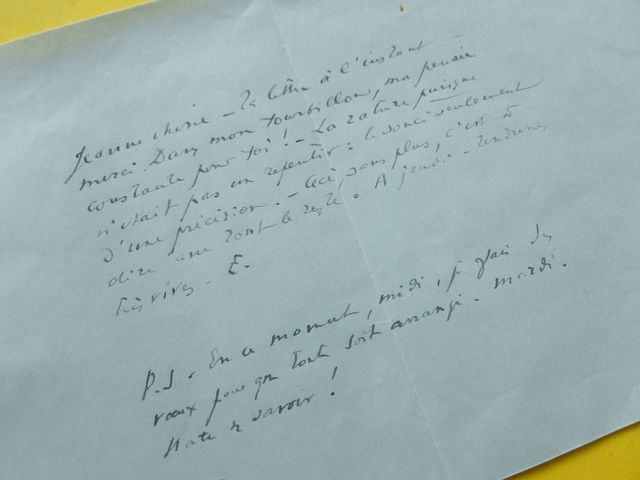 Jeanne chérie – Ta lettre à l'instant –
merci. Dans mon tourbillon, ma pensée
constante pour toi ! – La rature puisque
n'était pas un repentir : le souci seulement
d'une précision. – Ceci, sans plus, c'est à
dire avec tout le reste. A jeudi – Tendresses
très vives. E.
P.S. En ce moment, midi, je fais des
vœux pour que tout soit arrangé. mardi.
Hâte de savoir !